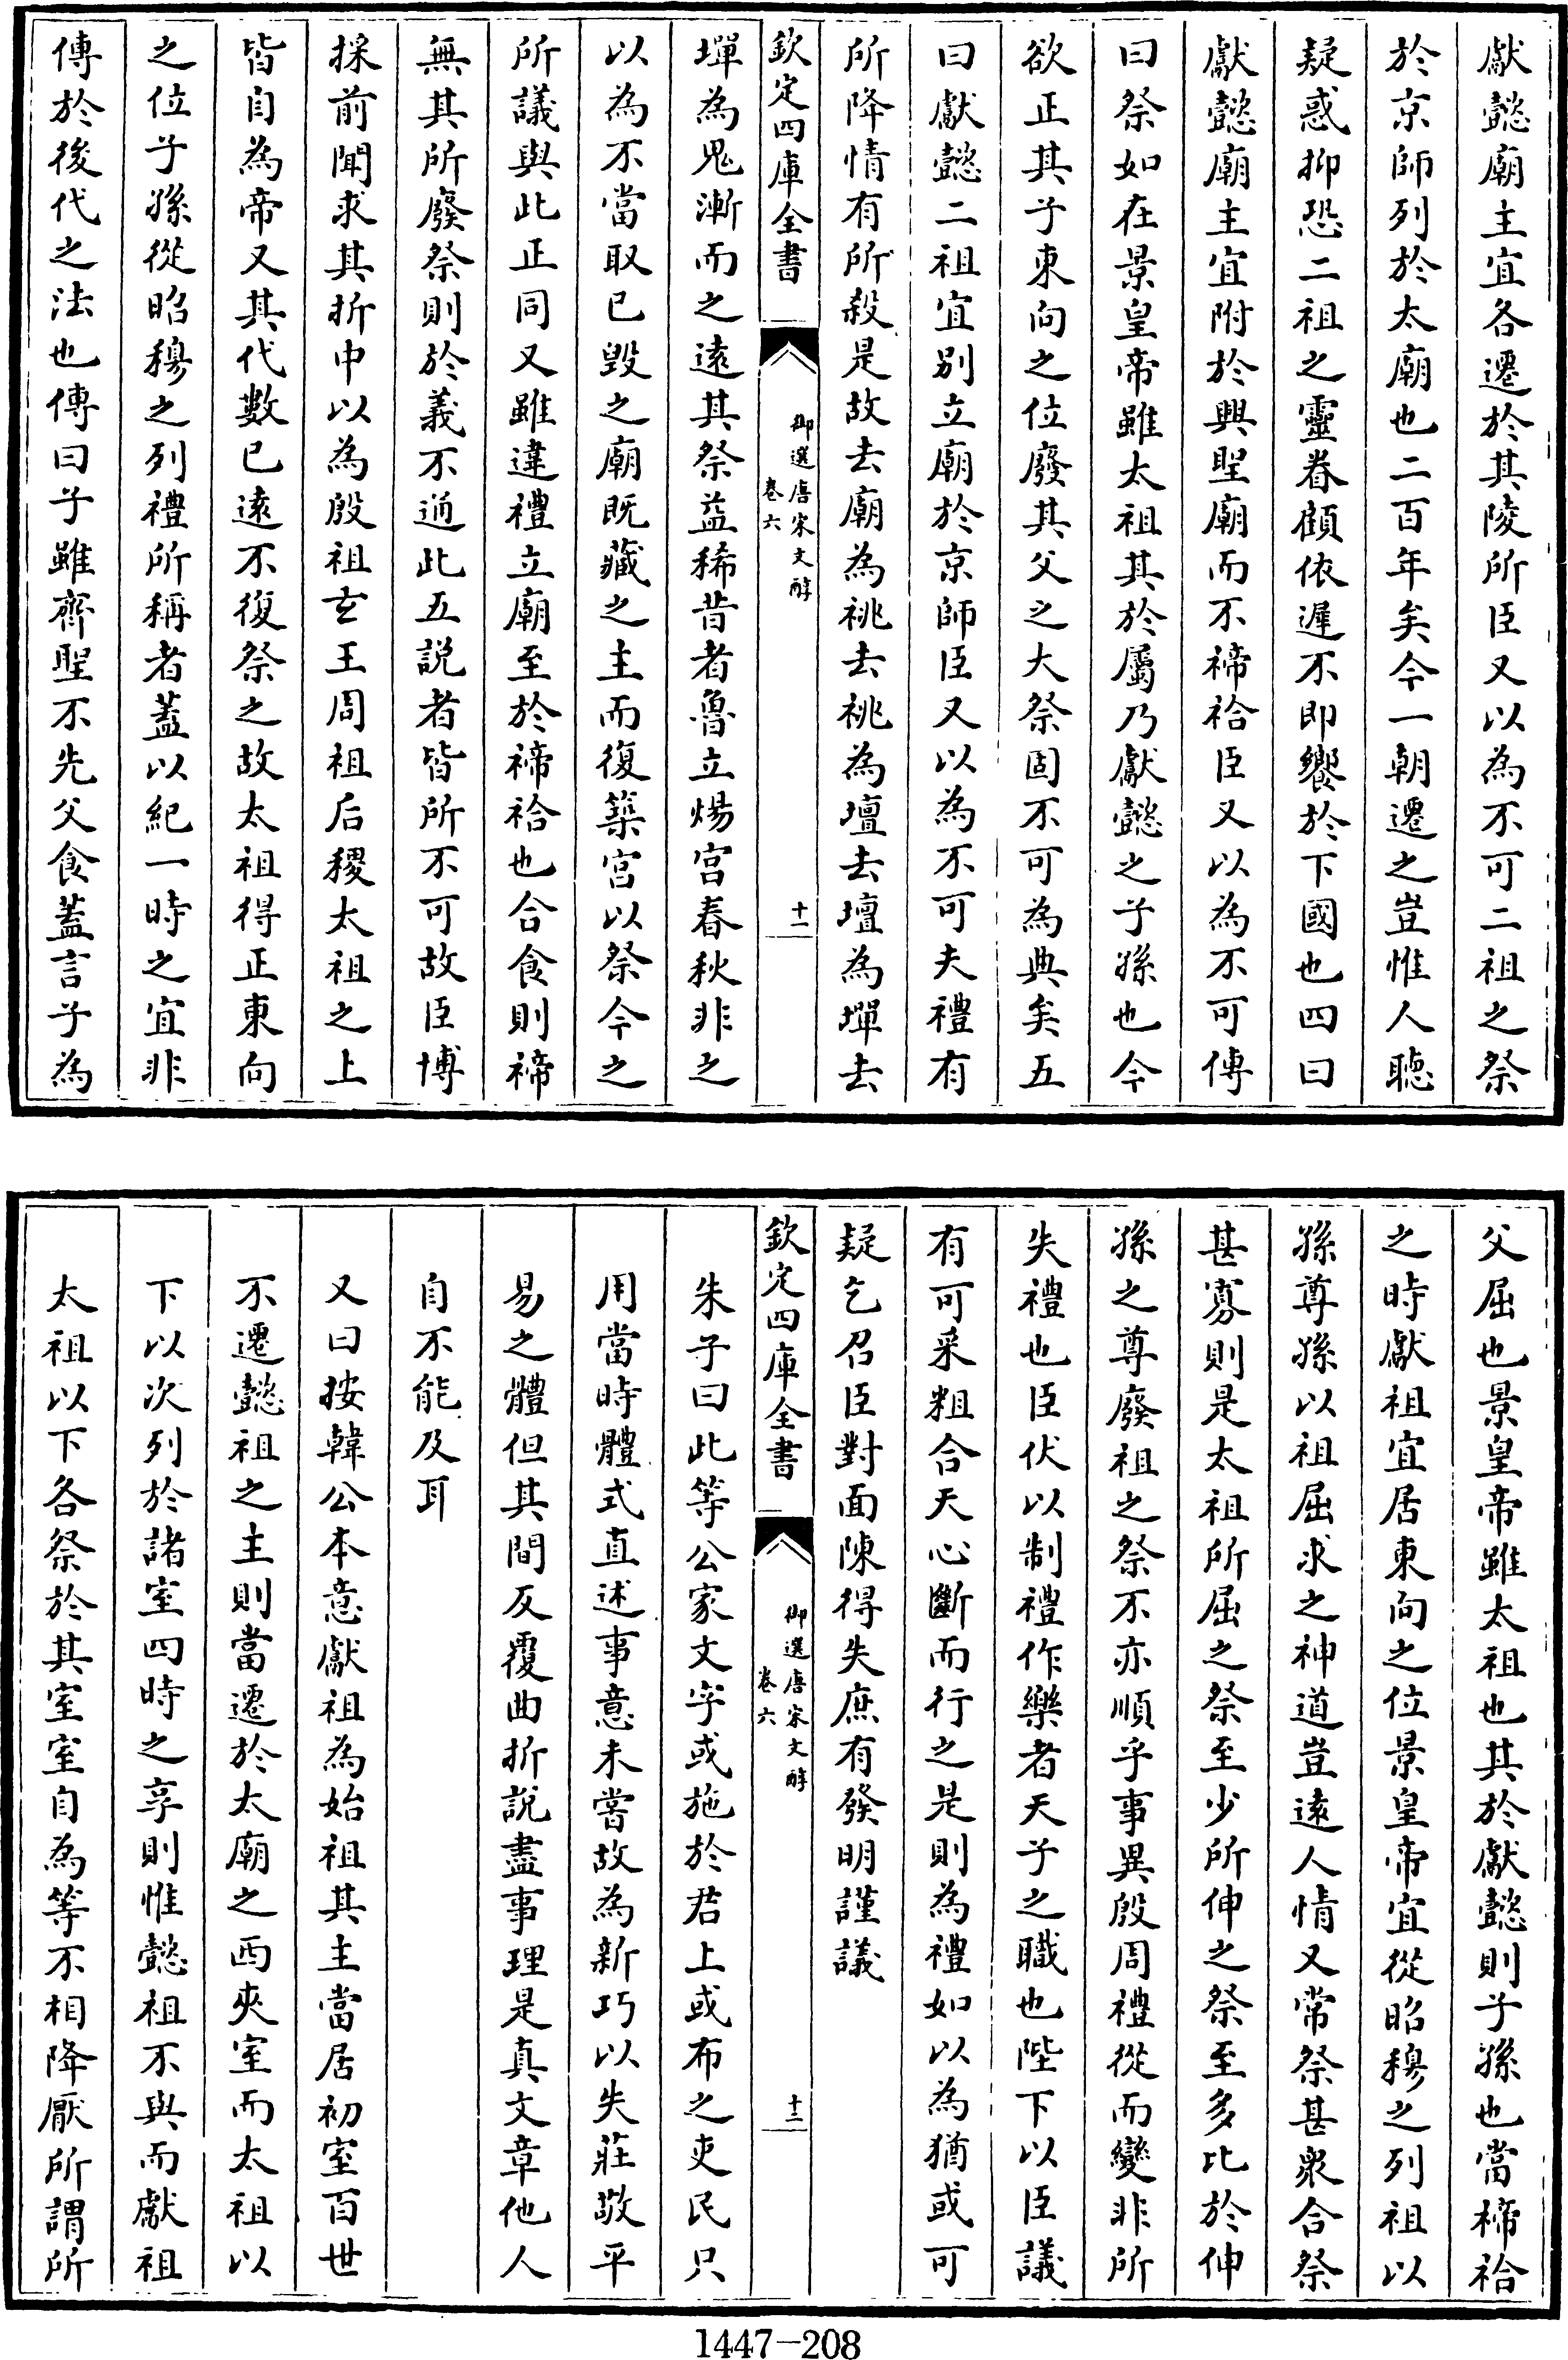 獻懿廟主宜各遷於其陵所臣又以為不可二祖之祭
於京師列於太廟也二百年矣今一朝遷之豈惟人聽
疑惑抑恐二祖之靈眷顧依遲不即饗於下國也四曰
獻懿廟主宜附於興聖廟而不禘祫臣又以為不可傳
曰祭如在景皇帝雖太祖其於屬乃獻懿之子孫也今
欲正其子東向之位廢其父之大祭固不可為典矣五
曰獻懿二祖宜別立廟於京師臣又以為不可夫禮有
所降情有所殺是故去廟為祧去祧為壇去壇為墠去
欽定四庫全書
御選唐宋文醇
卷六
十一
墠為鬼漸而之遠其祭益稀昔者魯立煬宮春秋非之
以為不當取已毀之廟既藏之主而復築宮以祭今之
所議與此正同又雖違禮立廟至於禘祫也合食則禘
無其所廢祭則於義不通此五說者皆所不可故臣博
採前聞求其折中以為殷祖玄王周祖后稷太祖之上
皆自為帝又其代數已遠不復祭之故太祖得正東向
之位子孫從昭穆之列禮所稱者蓋以紀一時之宜非
傳於後代之法也傳曰子雖齊聖不先父食蓋言子為
父屈也景皇帝雖太祖也其於獻懿則子孫也當禘祫
之時獻祖宜居東向之位景皇帝宜從昭穆之列祖以
孫尊孫以祖屈求之神道豈遠人情又常祭甚眾合祭
甚寡則是太祖所屈之祭至少所伸之祭至多比於伸
孫之尊廢祖之祭不亦順乎事異殷周禮從而變非所
失禮也臣伏以制禮作樂者天子之職也陛下以臣議
有可采粗合天心斷而行之是則為禮如以為猶或可
疑乞召臣對面陳得失庶有發明謹議
欽定四庫全書
御選唐宋文醇
卷六
十二
朱子曰此等公家文字或施於君上或布之吏民只
用當時體式直述事意未嘗故為新巧以失莊敬平
易之體但其間反覆曲折說盡事理是真文章他人
自不能及耳
又曰按韓公本意獻祖為始祖其主當居初室百世
不遷懿祖之主則當遷於太廟之西夾室而太祖以
下以次列於諸室四時之享則惟懿祖不與而獻祖
太祖以下各祭於其室室自為等不相降厭所謂所
1447-208